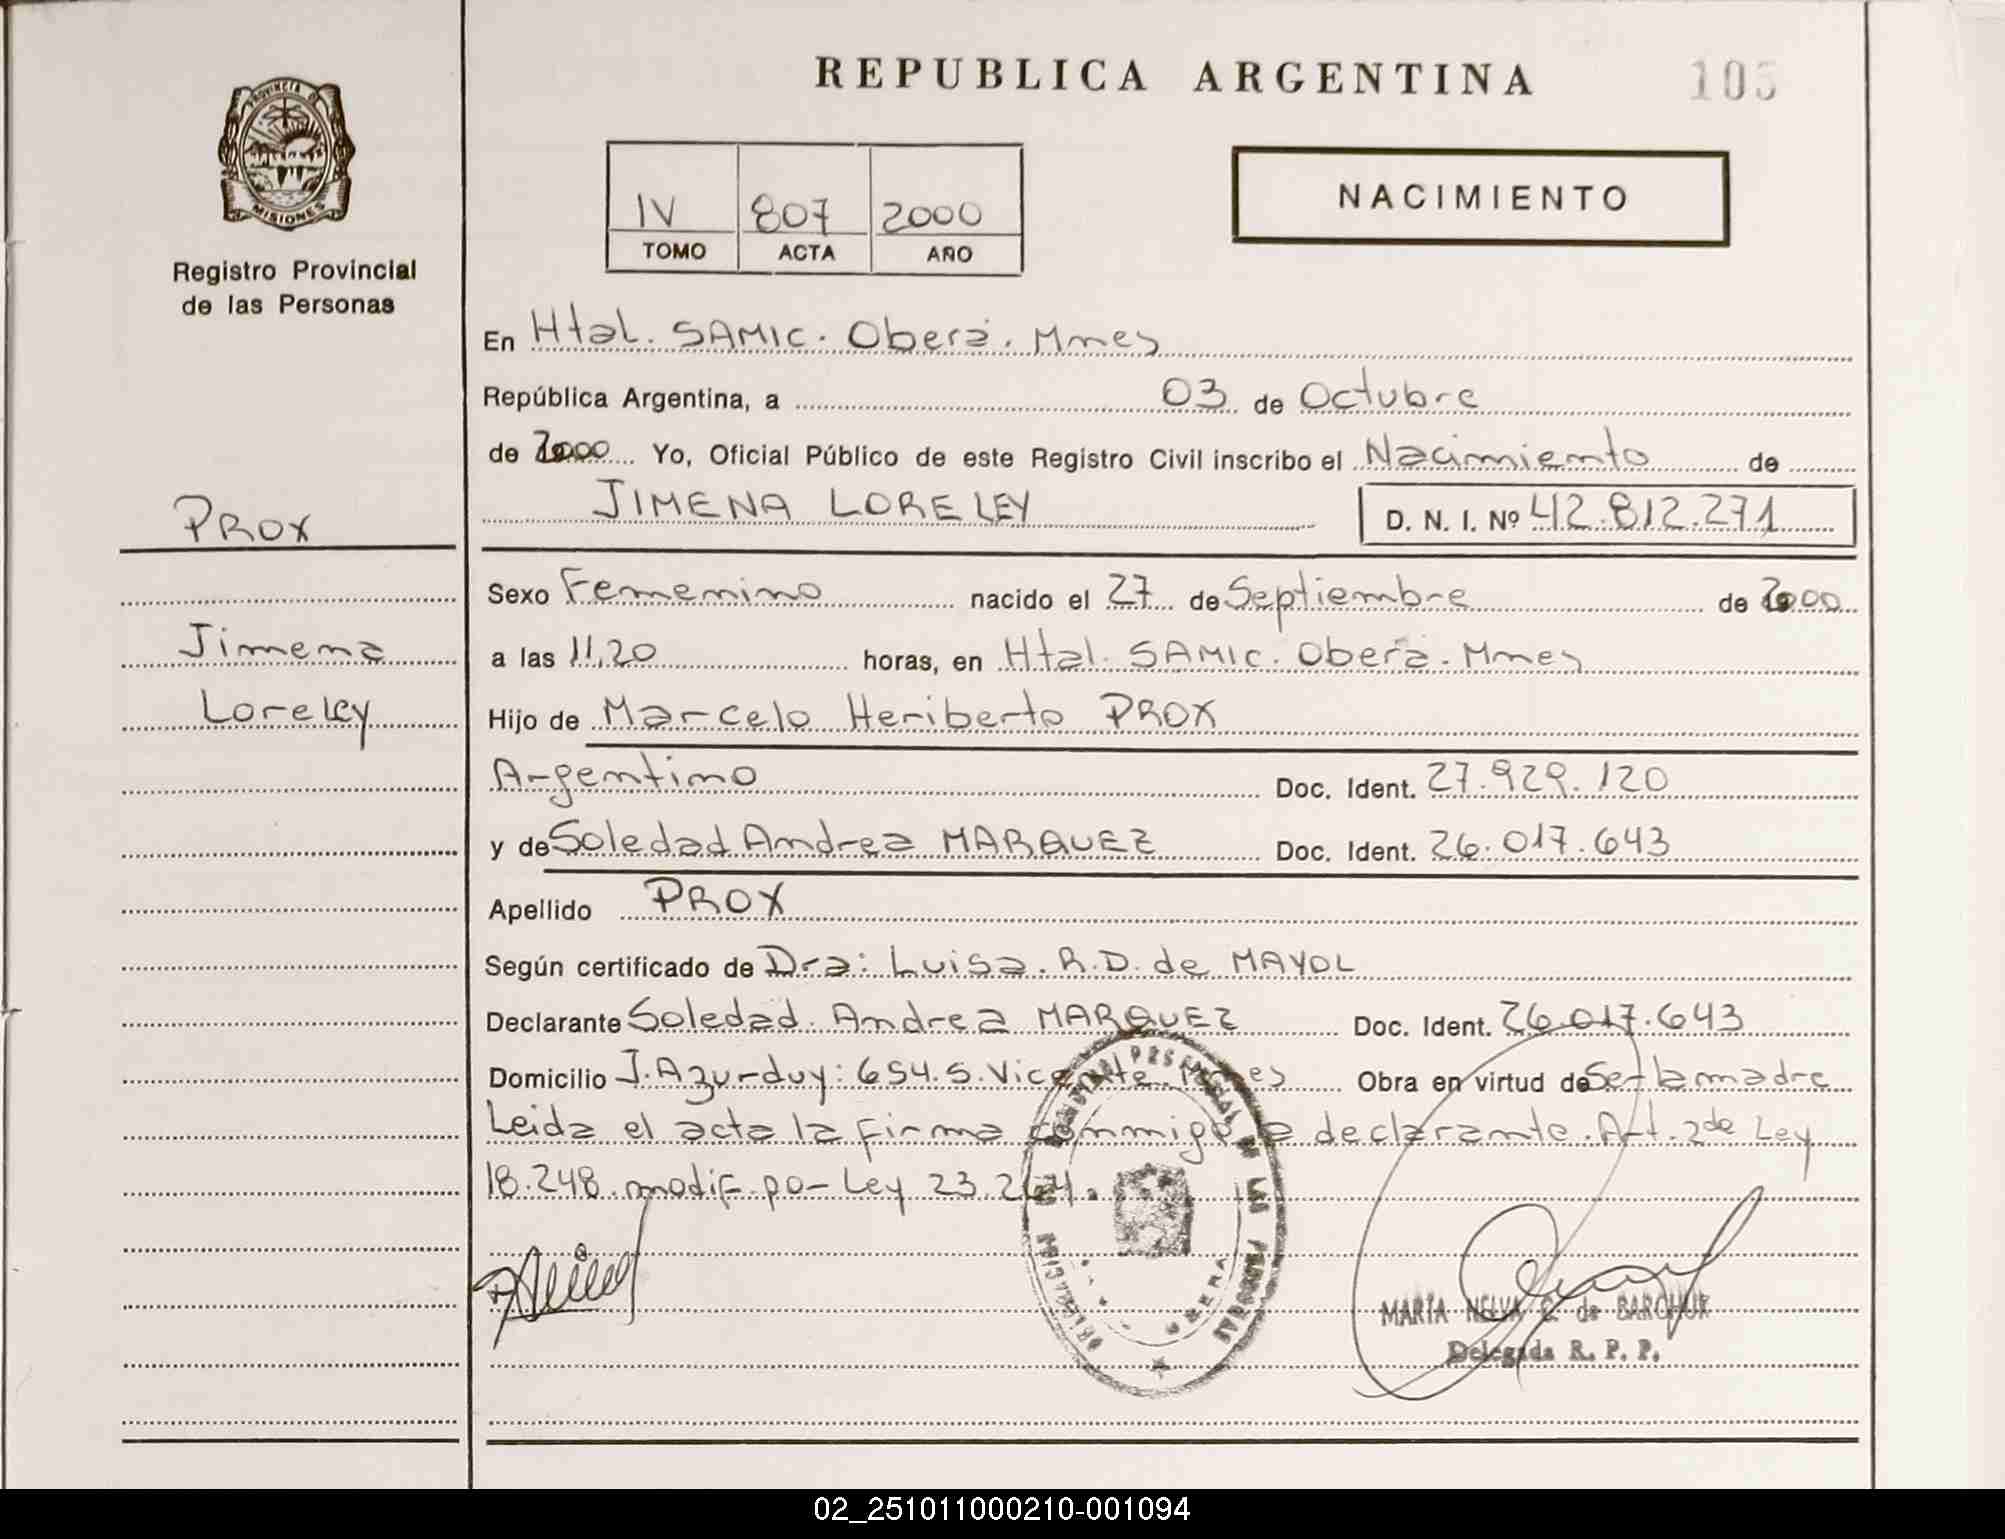 REPUBLICA ARGENTINA
105
PROVINCIA DE
MISIONES
Registro Provincial
de las Personas
IV 807 2000
TOMO ACTA AÑO
NACIMIENTO
En Htal. SAMIC. Oberá. Mnes
República Argentina, a 03 de Octubre
de 2000 Yo, Oficial Público de este Registro Civil inscribo el Nacimiento de
JIMENA LORELEY D. N. I. Nº 42.812.271
PROX
Jimena
Loreley
Sexo Femenino nacido el 27 de Septiembre de 2000
a las 11,20 horas, en Htal. SAMIC. Oberá. Mnes
Hijo de Marcelo Heriberto PROX
Argentino Doc. Ident. 27.929.120
y de Soledad Andrea MARQUEZ Doc. Ident. 26.017.643
Apellido PROX
Según certificado de Dra: Luisa. R.D. de MAYOL
Declarante Soledad. Andrea MARQUEZ Doc. Ident. 26.017.643
Domicilio J. Azurduy: 654. S. Vicente Mnes Obra en virtud de Ser la madre
Leida el acta la firma conmigo la declarante. Art. 2de Ley
18.248. modif. por Ley 23.264.
MARIA NELVA C. de BARCHUK
Delegada R. P. P.
02_251011000210-001094